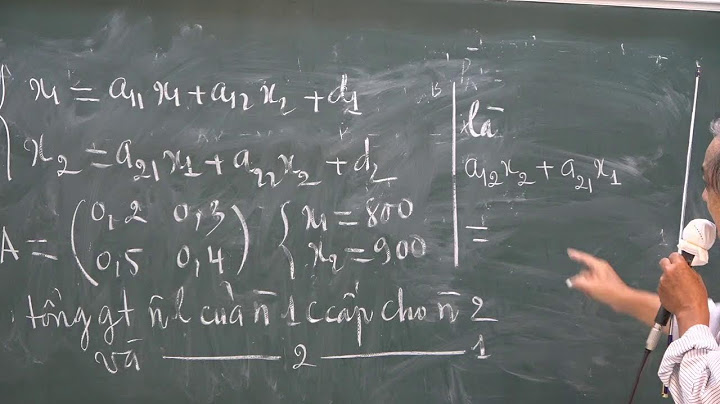 x₁ = a₁₁x₁ + a₁₂x₂ + d₁
x₂ = a₂₁x₁ + a₂₂x₂ + d₂
A = (0,2 0,3
0,5 0,4)
{x₁ = 800
x₂ = 900
tổng gt ñl của ñ 1 c cấp cho ñ 2
và — 2 — 1
là
a₁₂x₂ + a₂₁x₁
=